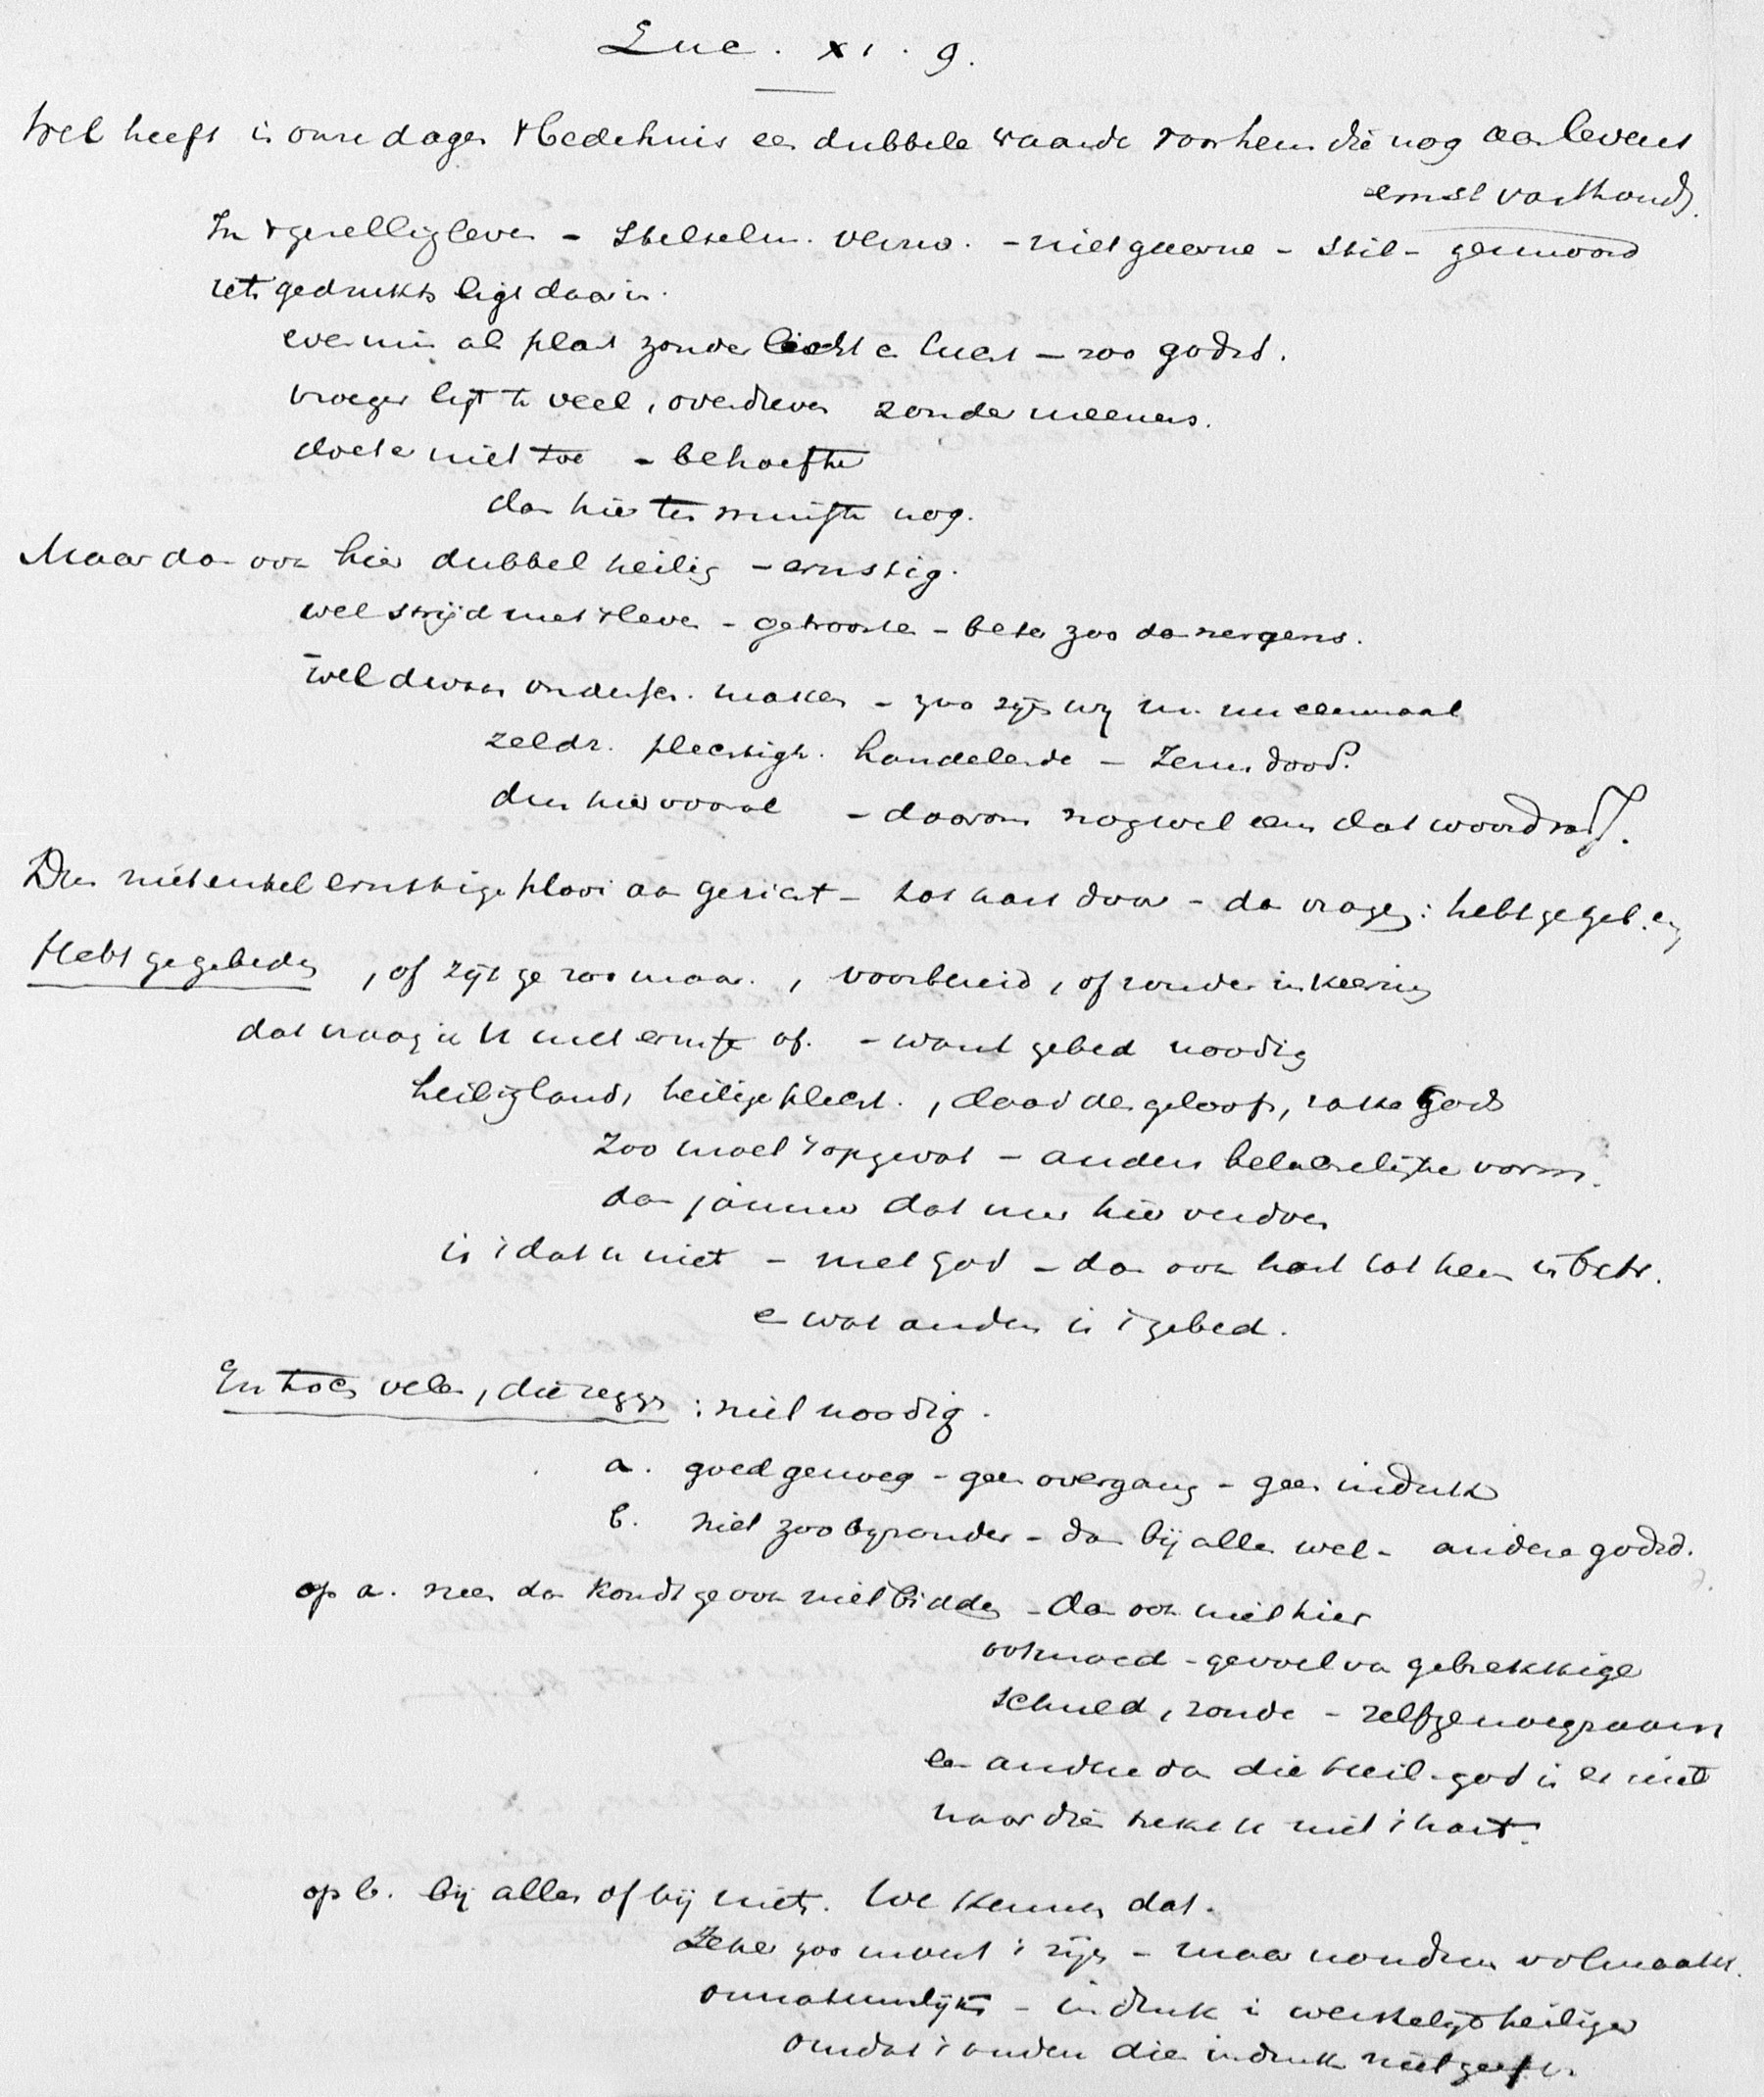 Luc. XI. 9.
Wel heeft in onze dagen 't bedehuis een dubbele waarde voor hem die nog aan levens
ernst vasthoudt.
In 't gezellig leven - stelseln. - niet gaarne - stil - gesmoord
iets gedrukts ligt daarin.
evenmin als plant zonder licht en lucht - zoo godsd.
vroeger ligt te veel, overdreven zonder meenens.
doet er niet toe - behoefte
dan hier ten minste nog.
Maar dan ook hier dubbel heilig - ernstig.
wel strijd met 't leven - getroosten - beter zoo dan nergens.
Wel dwaas ondersch. maken - zoo zijn wij m. nu eenmaal
zeldz. plechtigh. handelende - zenuw dood.
dus hier vooral - daarom nog wel eens dat woord
Dus niet enkel ernstige plooi aan gezicht - tot hart door - dan vragen: hebt ge geb. en
Hebt ge gebeden, of zijt ge zoo maar., voorbereid, of zonder inkeering
dat vraag ik U met ernst af. - want gebed noodig
heilig land, heilige plecht., daad des geloofs, zake Gods
Zoo moet 't opgevat - anders belachelijke vorm.
dan jammer dat uur hier verdoen
is 't dat U niet - met God - dan ook hart tot hem in betr.
en wat anders is 't gebed.
En toch velen, die zeggen: niet noodig.
a. goed genoeg - geen overgang - geen indruk
b. niet zoo byzonder - dan bij alles wel - andere godsd.
op a. neen dan kondt ge ook niet bidden - dan ook niet hier
ootmoed - gevoel van gebrekkige
schuld, zonde - zelfgenoegzaam
een andere dan die heil. god is er niet
naar dien trekt U niet 't hart.
op b. bij alles of bij niets. We kennen dat.
Zeker zoo moest 't zijn - maar wonder volmaakt.
onnatuurlijk - indruk is werkelijk heiliger
omdat 't andere die indruk niet geeft.